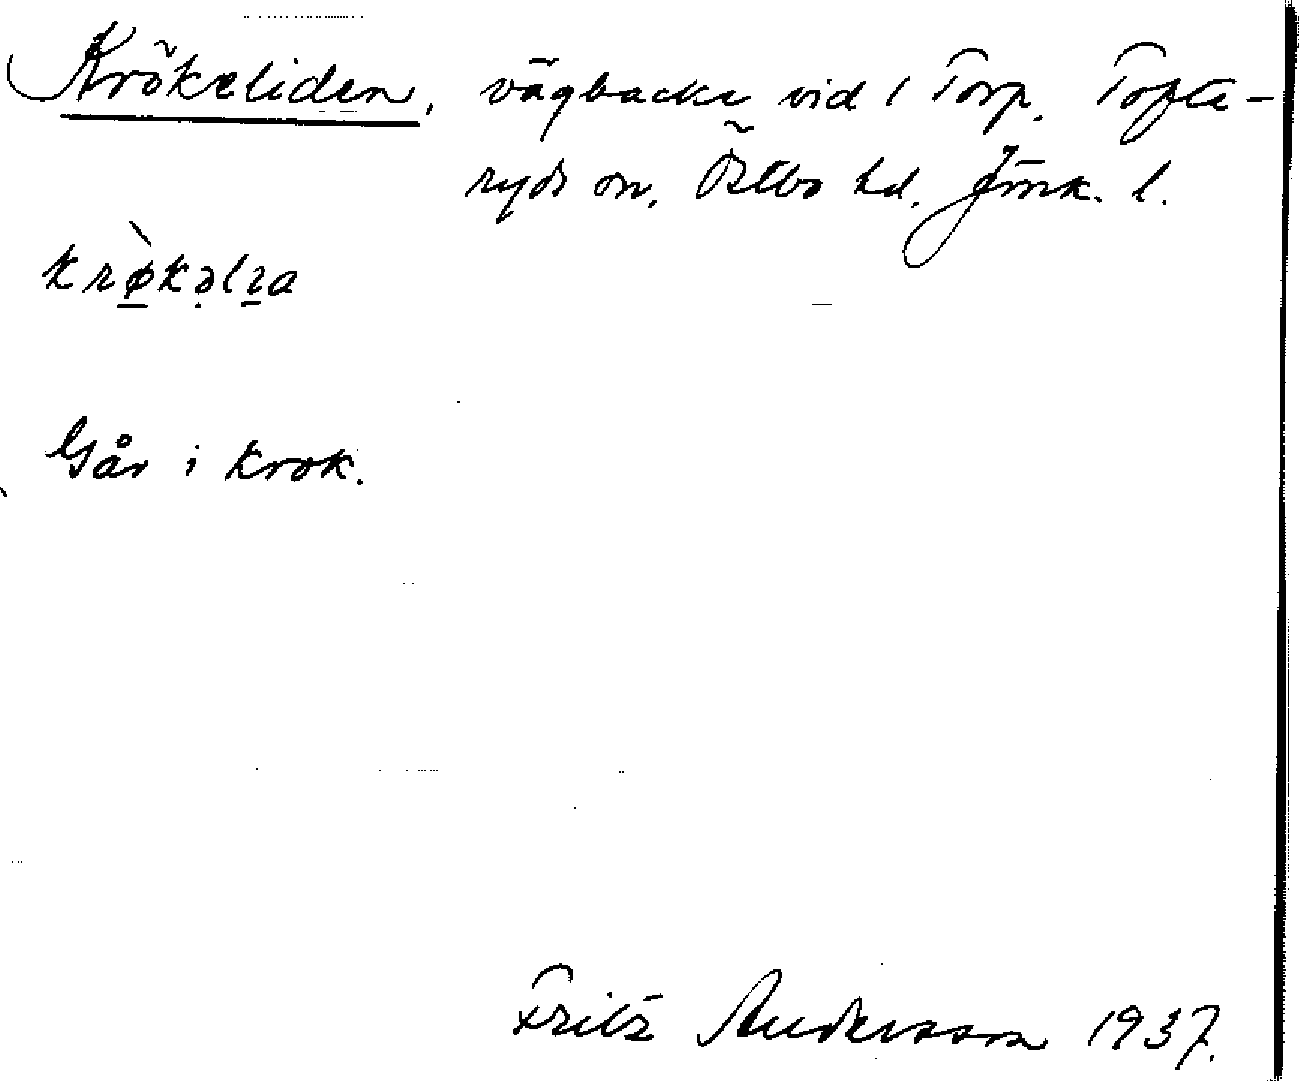 Krökeliden, vägbacke vid 1 Torp. Tofte-
ryds sn, Östbo hd. Jönk. l.
krø̀kəlıa
Går i krok.
Fritz Andersson 1937.